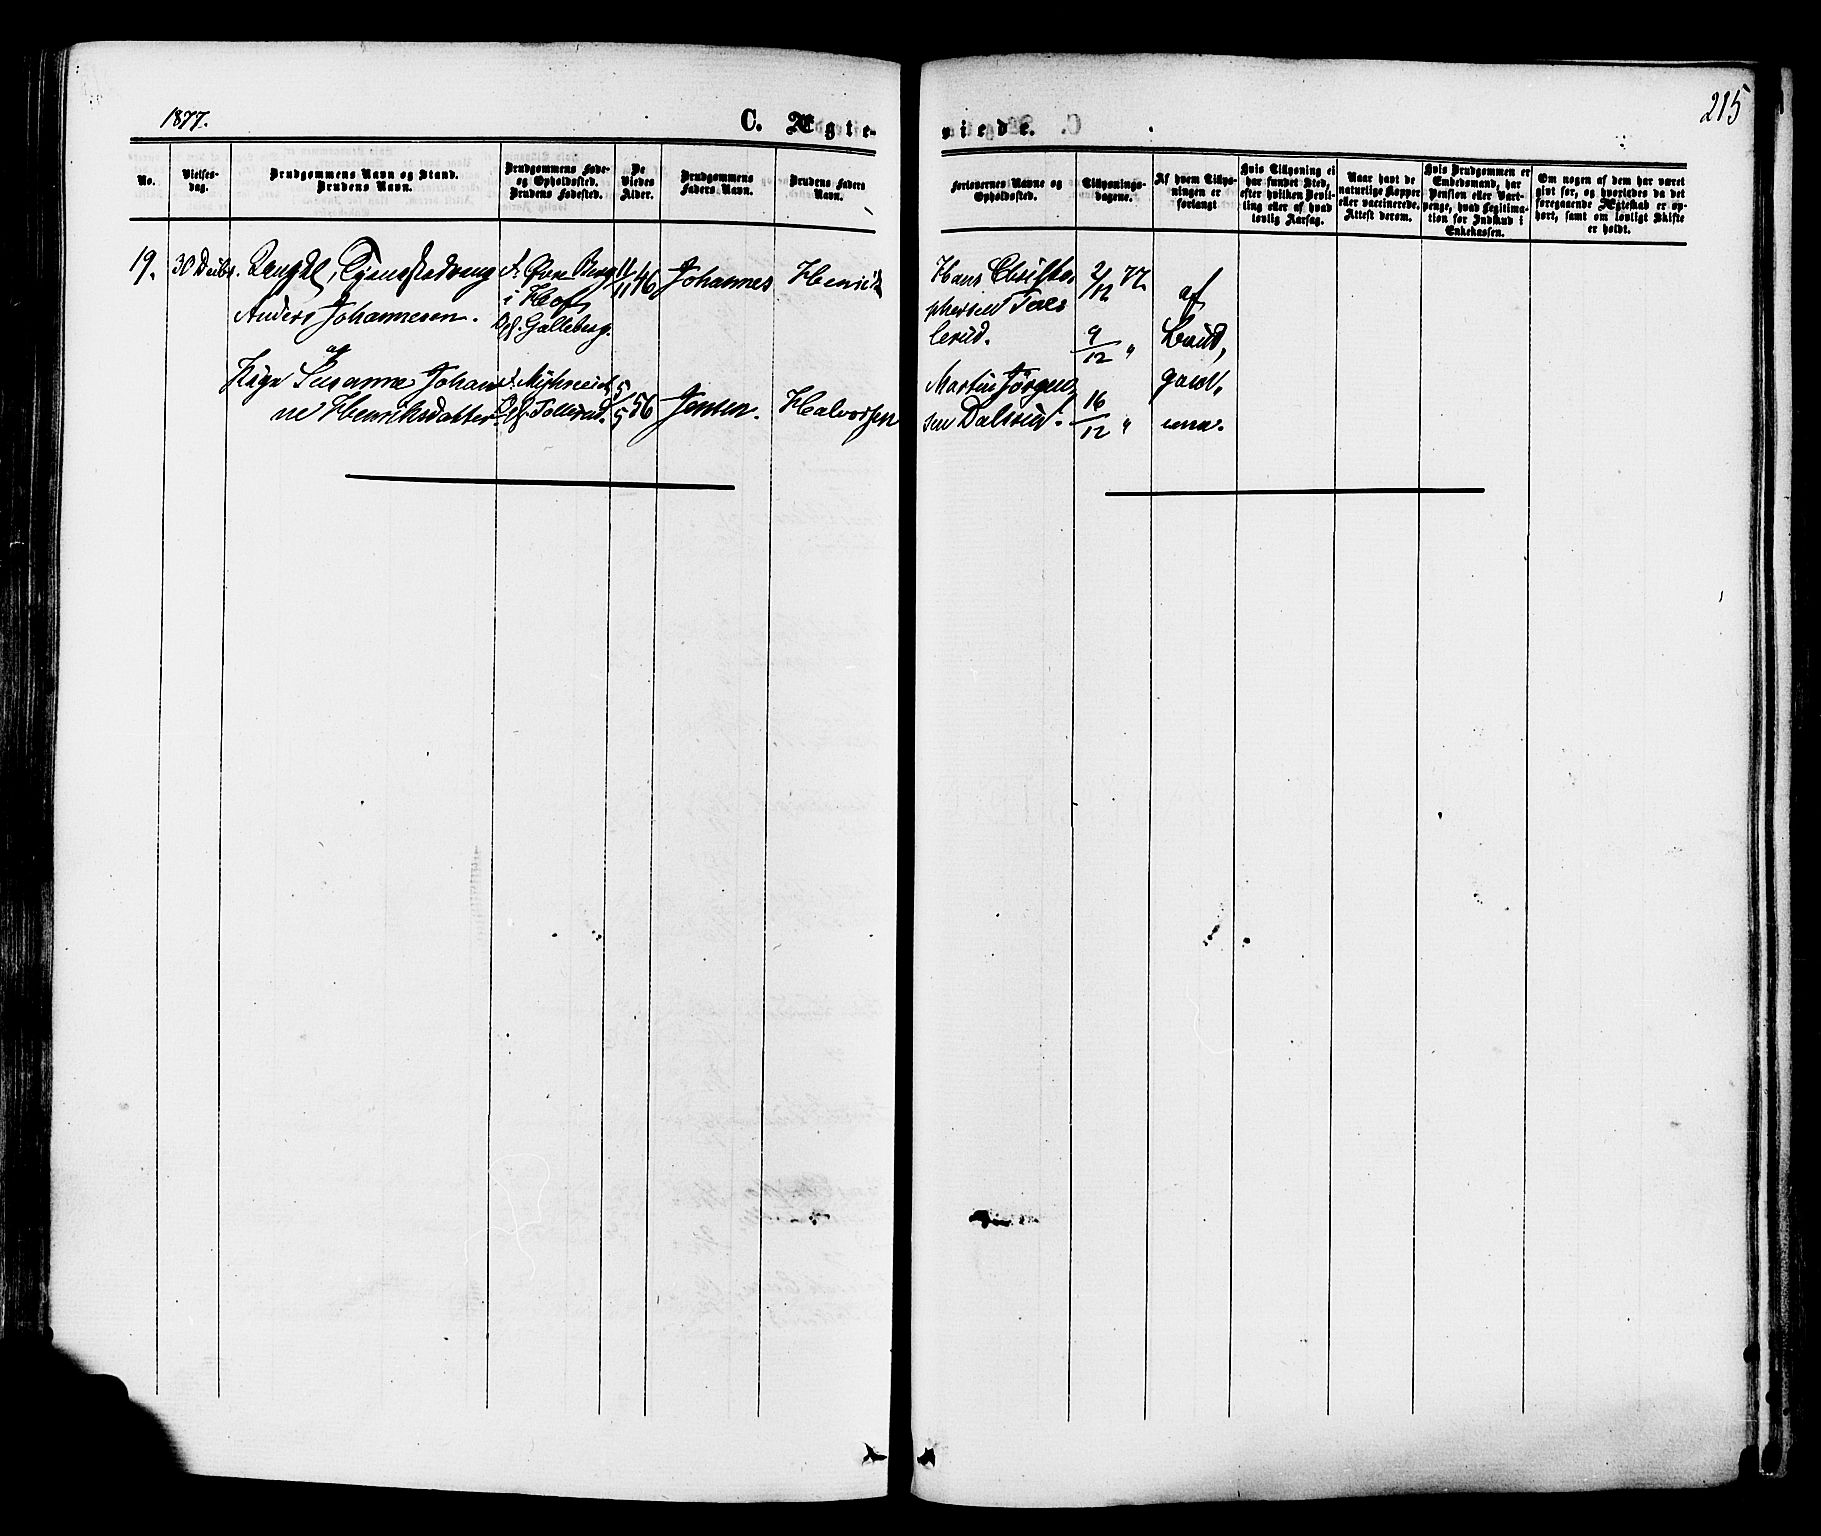 1877.
C. Ægte-
viede.
215
No.
Vielses-
dag.
Brudgommens Navn og Stand.
Brudens Navn.
Brudgommens Føde-
og Opholdssted.
Brudens Fødested.
De
Viedes
Alder.
Brudgommens
Faders Navn.
Brudens Faders
Navn.
Forlovernes Navne og
Opholdssted.
Tillysnings-
dagene.
Af hvem Tillys-
ningen er
forlangt
Hvis Tillysning ei
har fundet Sted,
efter hvilken Bevil-
ling eller af hvad
lovlig Aarsag.
Naar havt de
naturlige Kopper
eller vaccinerede.
Attest derom.
Hvis Brudgommen er
Embedsmand, har
Pension eller Vart-
penge, hvad Legitima-
tion for Indskud i
Enkekassen.
Om nogen af dem har været
gift før, og hvorledes da det
foregaaende Ægteskab er op-
hørt, samt om lovligt Skifte
er holdt.
19.
30 Decbr.
Ungkl,
Anders Johannesen.
og
Pige Susanne Johan
ne Henriksdatter
f. Øvre Berg
i Hof,
Galleberg.
11/11 46
5/5 56
Johannes
Jensen.
Henrik
Halvorsen
Hans Christo-
phersen
Martin Jørgen
sen
2/12 77.
9/12 "
16/12 "
af
Brud,
gom,